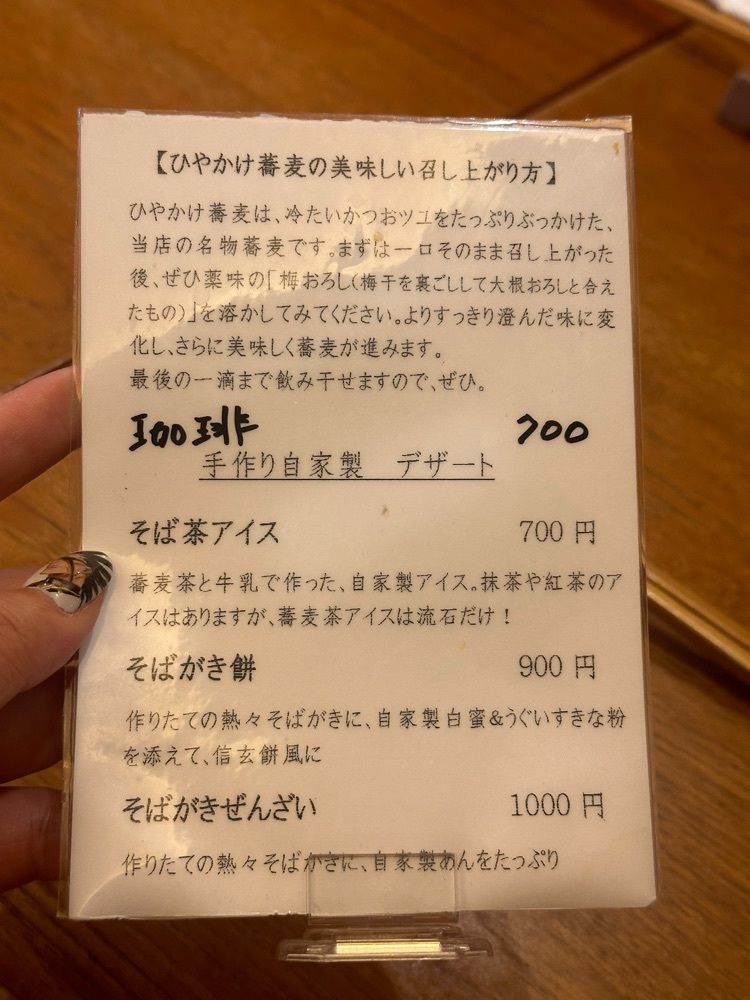 【ひやかけ蕎麦の美味しい召し上がり方】
ひやかけ蕎麦は、冷たいかつおツユをたっぷりぶっかけた、
当店の名物蕎麦です。まずは一口そのまま召し上がった
後、ぜひ薬味の「梅おろし(梅干を裏ごしして大根おろしと合え
たもの)」を溶かしてみてください。よりすっきり澄んだ味に変
化し、さらに美味しく蕎麦が進みます。
最後の一滴まで飲み干せますので、ぜひ。
珈琲 700
手作り自家製 デザート
そば茶アイス 700 円
蕎麦茶と牛乳で作った、自家製アイス。抹茶や紅茶のア
イスはありますが、蕎麦茶アイスは流石だけ!
そばがき餅 900 円
作りたての熱々そばがきに、自家製白蜜&うぐいすきな粉
を添えて、信玄餅風に
そばがきぜんざい 1000 円
作りたての熱々そばがきに、自家製あんをたっぷり